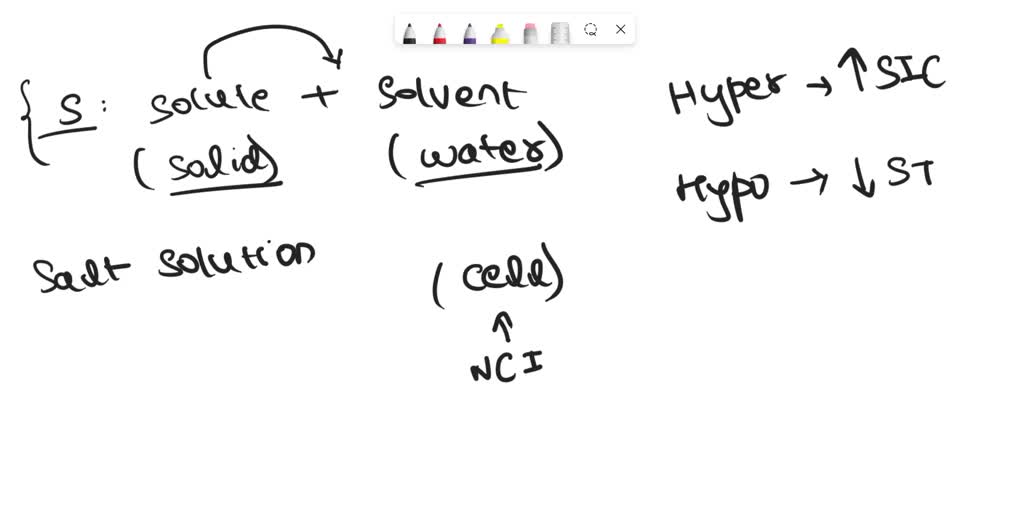 S: solute + Solvent
(solid) (water)
Salt solution
(cell)
↑
NCI
Hyper → ↑ SIC
Hypo → ↓ ST